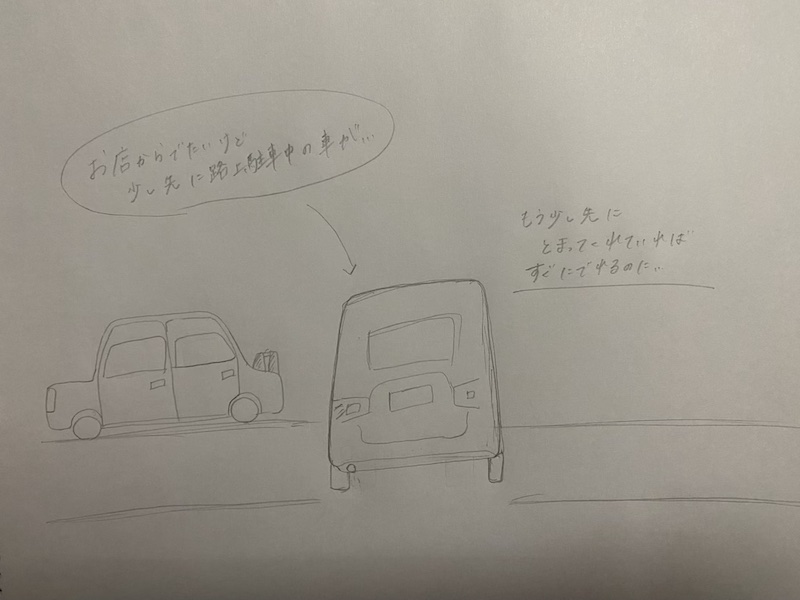 お店からでたいけど
少し先に路上駐車中の車が…
もう少し先に
とまってくれていれば
すぐにでれるのに…